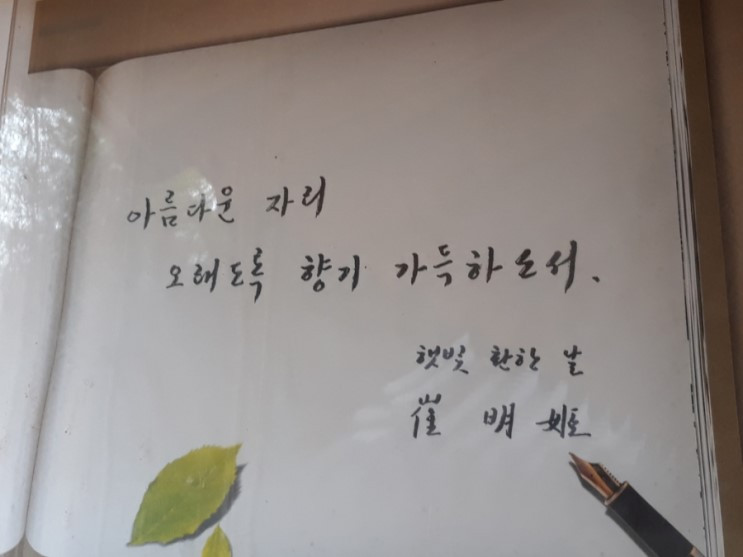 아름다운 자리
오래도록 향기 가득하소서.
햇빛 환한 날
崔 明 姬